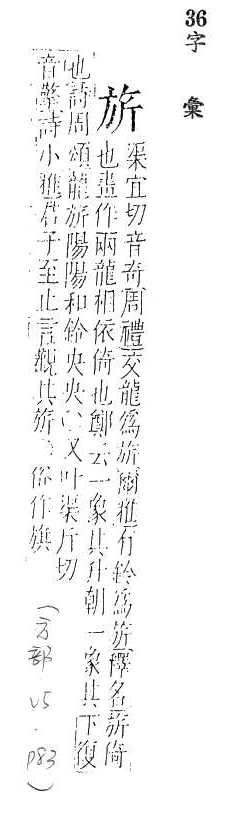 36字 彙
旂
渠宜切音奇周禮交龍為旂爾雅有鈴為旂釋名旂倚
也畫作兩龍相依倚也鄭云一象其升朝一象其下復
也詩周頌龍旂陽陽和鈴央央〇又叶渠斤切
音 詩小雅君子至止言觀其旂 俗作旗
(方部 V5. P83)